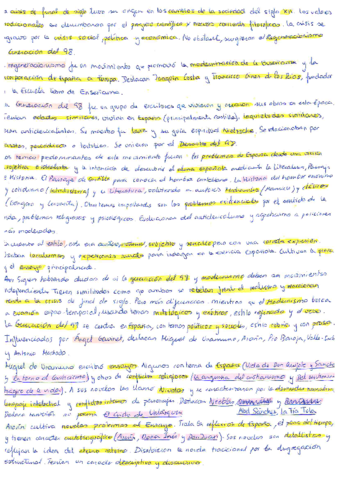 La crisis de final de siglo tuvo un origen en los cambios de la sociedad del siglo XIX. Los valores
tradicionales se desmoronan por el progreso científico y nuevas corrientes filosóficas. La crisis se
agrava por la crisis social, política y económica. No obstante, surgieron el Regeneracionismo
Generación del 98.
regeneracionismo fue un movimiento que promovió la modernización de la enseñanza y la
incorporación de España a Europa. Destacan Joaquín Costa y Francisco Giner de los Ríos, fundador
la Escuela Libre de Enseñanza.
La Generación del 98 fue un grupo de escritores que vivieron y crearon sus obras en esta época.
Tenían edades similares, vivían en España (principalmente Castilla), inquietudes similares,
eran anticlericalistas. Su maestro fue Larra y su guía espiritual Nietzsche. Se relacionaban por
cartas, periódicos o tertulias. Se unieron por el Desastre del 98.
Los temas predominantes de este movimiento fueron: los problemas de España desde una visión
subjetiva e idealista y la intención de descubrir el alma española mediante la Literatura, Paisaje
e Historia. El Paisaje de Castilla para conocer el hombre castellano. La Historia del hombre anónimo
y cotidiano (intrahistoria) y la Literatura, exaltando a autores Medievales (Manrique) y clásicos
(Góngora y Cervantes). Otro tema importante son los problemas existenciales por el sentido de la
vida, problemas religiosos y psicológicos. Evolucionan del anticlericalismo y agnosticismo a posiciones
más moderadas.
En cuanto al estilo, este era sobrio, cuidado, subjetivo y sencillo pero con una correcta expresión.
Usaban localismos y experiencias rurales para indagar en la esencia española. Cultivan la prosa
y el ensayo principalmente.
Han surgido bastantes dudas de si la generación del 98 y modernismo deben ser movimientos
independientes. Tienen similitudes como que ambos se rebelan frente al realismo y reaccionan
frente a la crisis de final de siglo. Pero más diferencian: mientras que el modernismo busca
la evasión espacio temporal, usando temas mitológicos y exóticos, estilo refinado y el verso.
La Generación del 98 se centra en España, con temas políticos y sociales, estilo sobrio y con prosa.
Influenciados por Ángel Ganivet, destacan Miguel de Unamuno, Azorín, Pío Baroja, Valle-Inclán
y Antonio Machado.
Miguel de Unamuno escribió ensayos. Algunos con tema de España (Vida de Don Quijote y Sancho
y En torno al Casticismo) y otros de conflictos religiosos (La agonía del cristianismo y Del sentimiento
trágico de la vida). A sus novelas las llamó Nivolas y se caracterizan por la
lenguaje intelectual y conflictos internos de personajes. Destacan Niebla,
San Manuel, La Tía Tula.
Dedica también un poema, El Cristo de Velázquez.
Azorín cultiva novelas próximas al Ensayo. Trata la reflexión de España, el paso del tiempo,
y tienen carácter autobiográfico (Azorín, Doña Inés y Don Juan). Sus novelas son detallistas y
reflejan la idea del eterno retorno. Disolución la novela tradicional por la disgregación
estructural. Tenían un carácter descriptivo y discursivo.